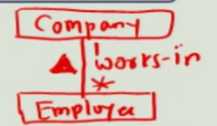 Company
1
works-in
*
Employee